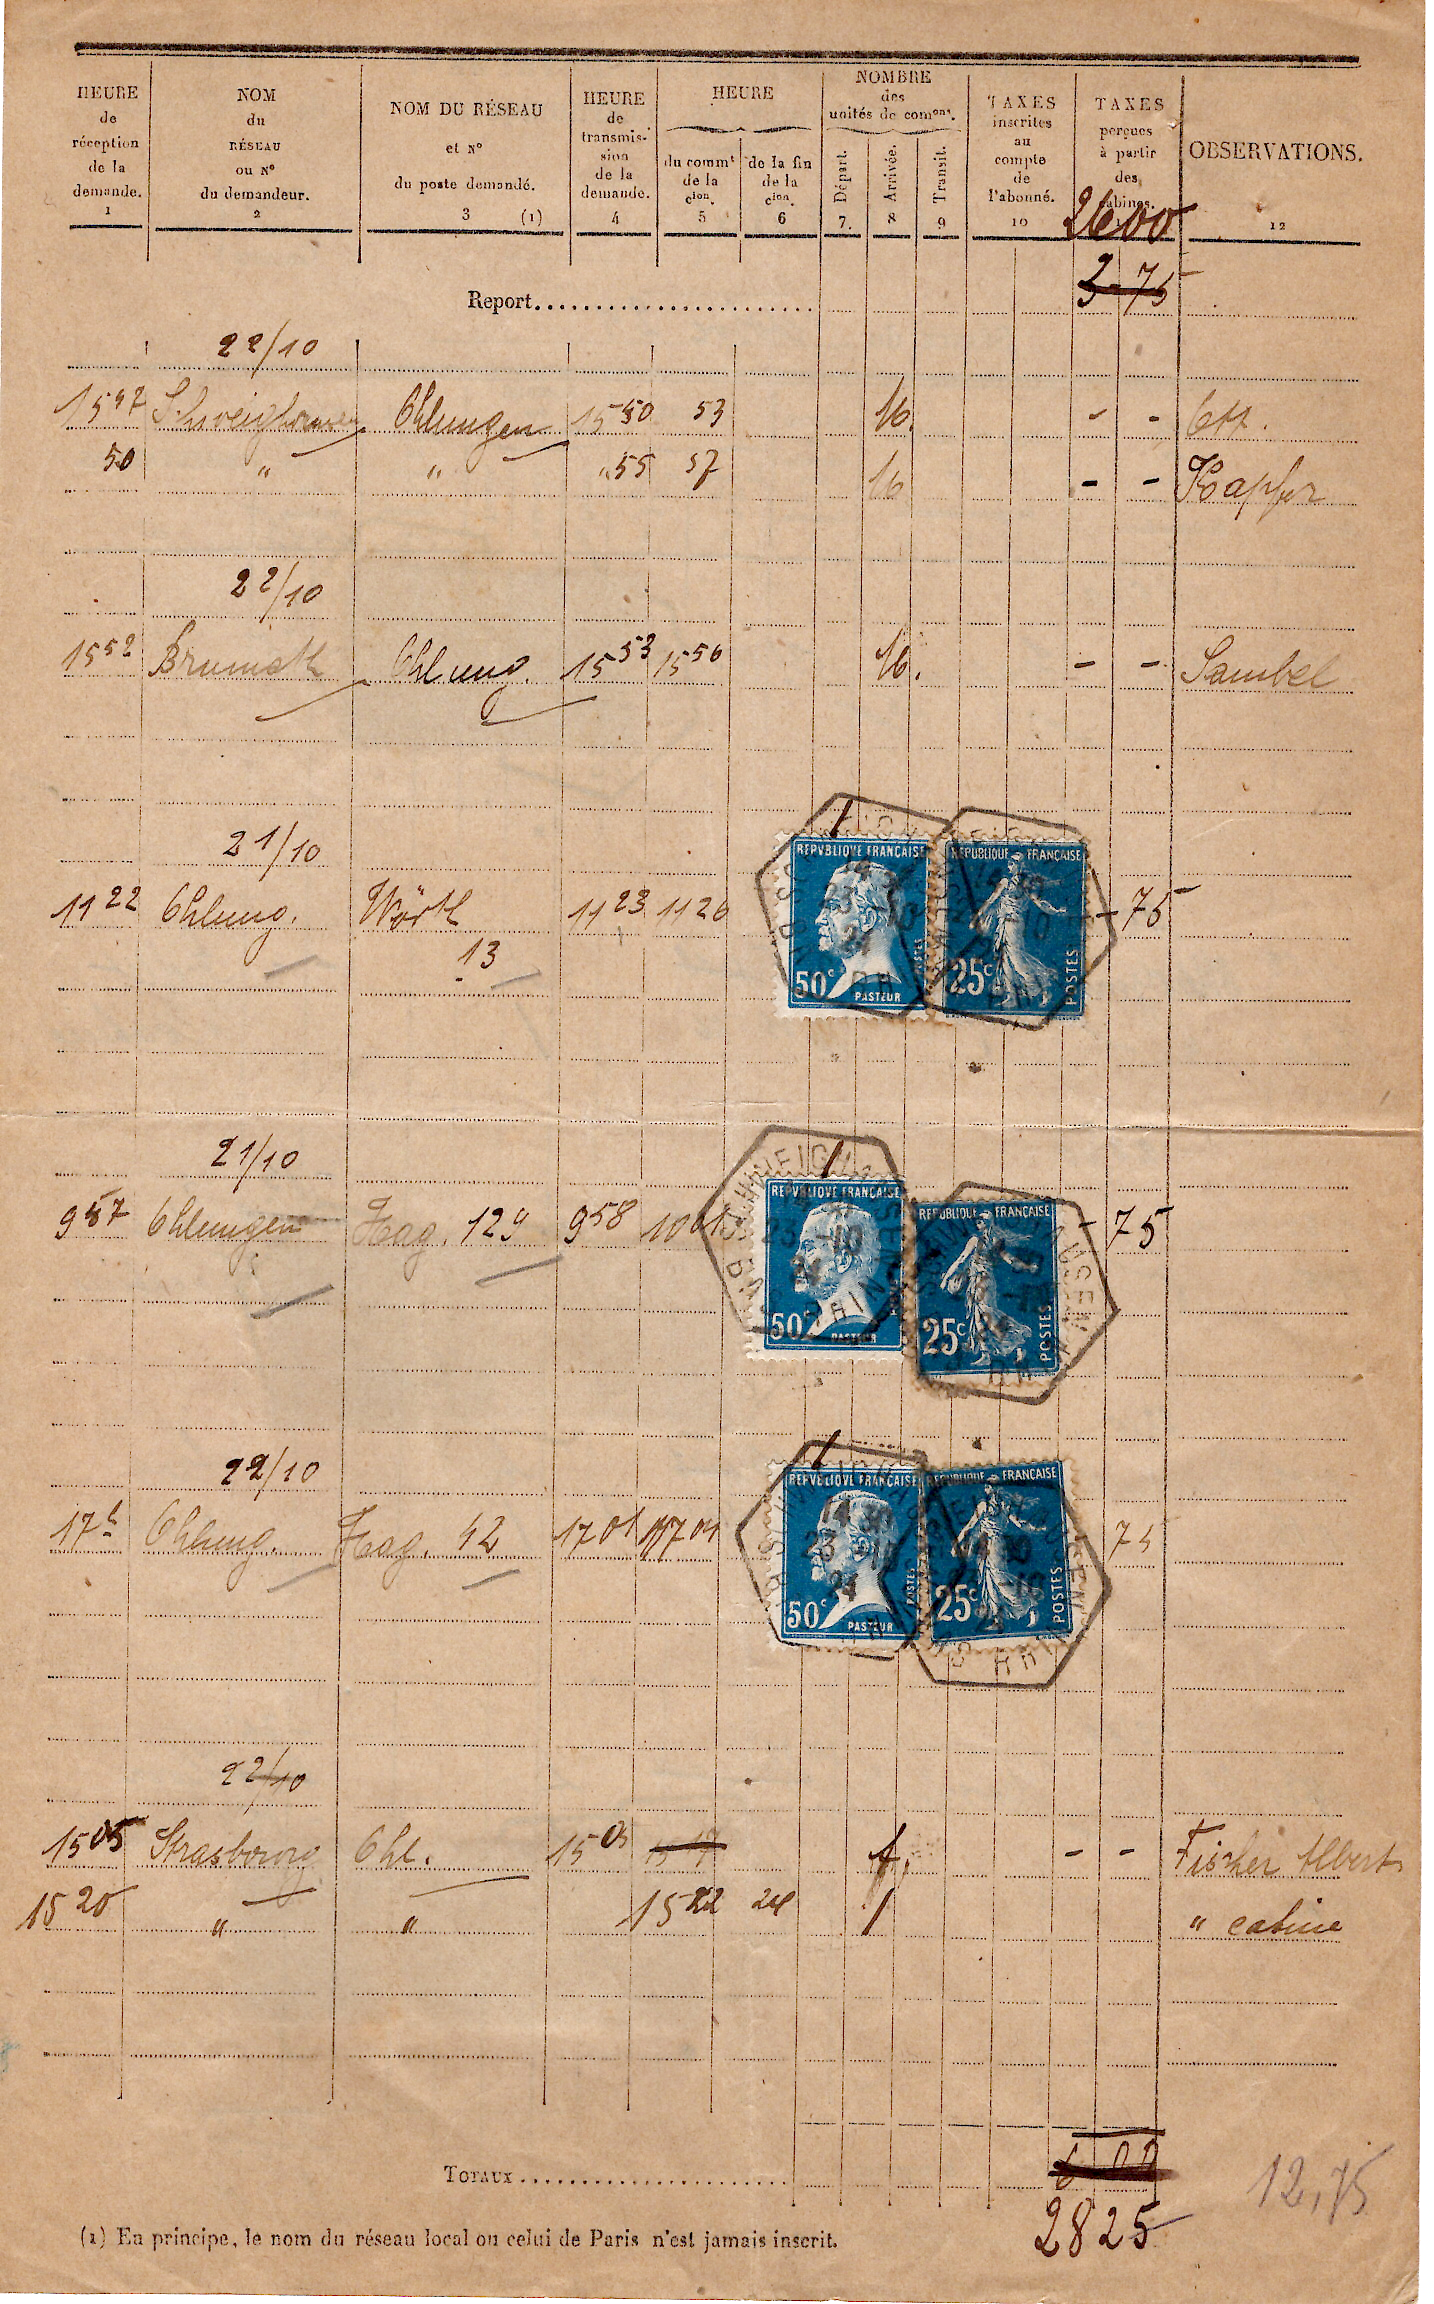 HEURE de réception de la demande. 1
NOM du RÉSEAU ou N° du demandeur. 2
NOM DU RÉSEAU et N° du poste demandé. 3 (1)
HEURE de transmis-sion de la demande. 4
HEURE
du commt de la cion. 5
de la fin de la cion. 6
NOMBRE des unités de comons.
Départ. 7.
Arrivée. 8
Transit. 9
TAXES inscrites au compte de l'abonné. 10
TAXES perçues à partir des cabines.
OBSERVATIONS. 12
2600
Report
3 75
22/10
15 47 Schweighausen Ohlungen 15 50 53 - - Ott.
50 " " " 55 57 - - Kapfer
22/10
15 52 Brumath Ohlung. 15 53 15 56 - - Sambel
21/10
11 22 Ohlung. Wörth 11 23 11 26 - 75
13
REPVBLIQVE FRANÇAISE 50c POSTES PASTEUR
REPUBLIQUE FRANÇAISE 25c POSTES
21/10
9 57 Ohlungen Hag. 129 9 58 10 01 - 75
REPVBLIQVE FRANÇAISE 50c PASTEUR
REPUBLIQUE FRANÇAISE 25c POSTES
SCHWEIGHAUSEN BAS RHIN 23 -10 24
22/10
17h Ohlung. Hag. 42 17 01 17 04 75
REPVBLIQVE FRANÇAISE 50c POSTES PASTEUR
REPUBLIQUE FRANÇAISE 25c POSTES
14 30 23 -10 24
22/10
15 05 Strasbourg Ohl. 15 05 15 17 1 - - Fischer Albert
15 20 " " 15 22 24 1 " cabine
TOTAUX
28 25
12,75
(1) En principe, le nom du réseau local ou celui de Paris n'est jamais inscrit.